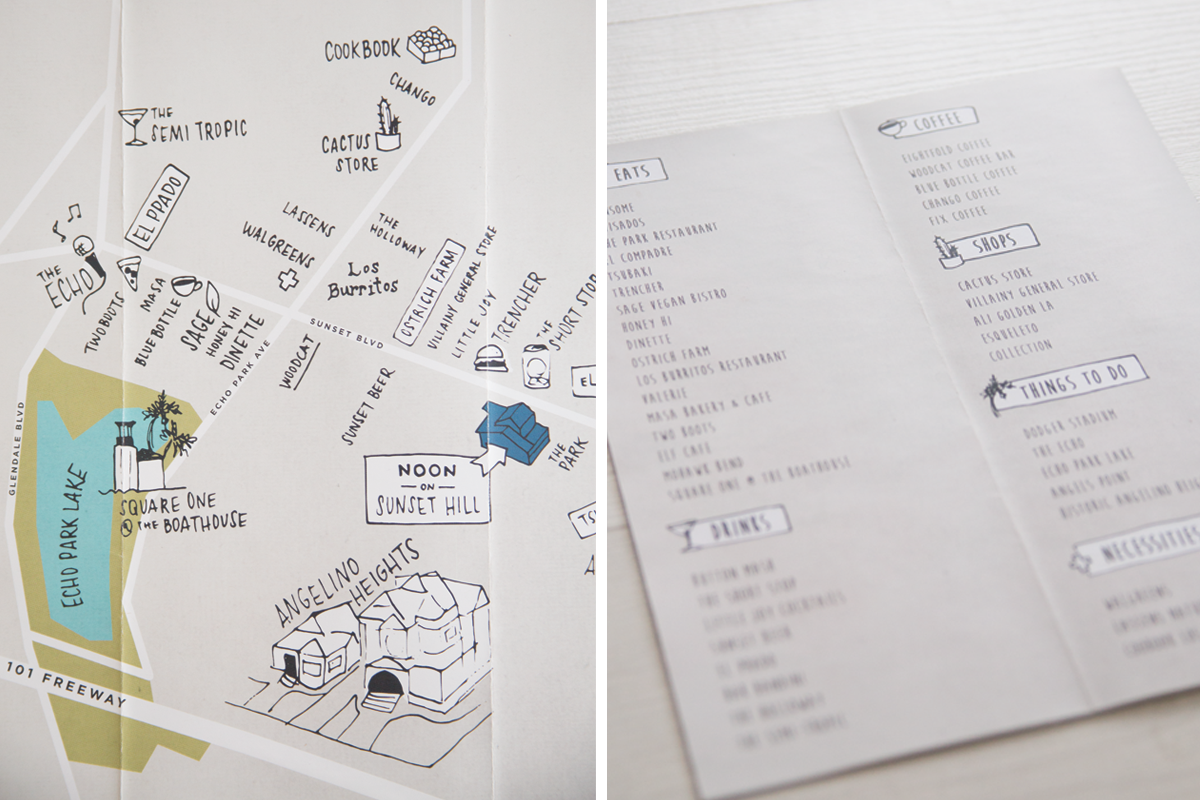 COOKBOOK
CHANGO
THE
SEMI TROPIC
CACTUS
STORE
EL PPADO
LASSENS
WALGREENS
THE
HOLLOWAY
Los
Burritos
OSTRICH FARM
VILLAINY GENERAL STORE
LITTLE JOY
TRENCHER
THE
SHORT STOP
THE
ECHO
TWO BOOTS
MASA
BLUE BOTTLE
SAGE
HONEY HI
DINETTE
ECHO PARK AVE
SUNSET BLVD
WOODCAT
SUNSET BEER
EL
THE
PARK
GLENDALE BLVD
ECHO PARK LAKE
SQUARE ONE
@ THE BOATHOUSE
NOON
ON
SUNSET HILL
TSU
A
ANGELINO
HEIGHTS
101 FREEWAY
EATS
THE PARK RESTAURANT
EL COMPADRE
TSUBAKI
TRENCHER
SAGE VEGAN BISTRO
HONEY HI
DINETTE
OSTRICH FARM
LOS BURRITOS RESTAURANT
VALERIE
MASA BAKERY & CAFE
TWO BOOTS
ELF CAFE
MOHAWK BEND
SQUARE ONE @ THE BOATHOUSE
DRINKS
BUTTON MASH
THE SHORT STOP
LITTLE JOY COCKTAILS
SUNSET BEER
EL PRADO
BAR BANDINI
THE HOLLOWAY
THE SEMI-TROPIC
COFFEE
EIGHTFOLD COFFEE
WOODCAT COFFEE BAR
BLUE BOTTLE COFFEE
CHANGO COFFEE
FIX COFFEE
SHOPS
CACTUS STORE
VILLAINY GENERAL STORE
ALI GOLDEN LA
ESQUELETO
COLLECTION
THINGS TO DO
DODGER STADIUM
THE ECHO
ECHO PARK LAKE
ANGELS POINT
HISTORIC ANGELINO HEI
NECESSITIES
WALGREENS
LASSENS